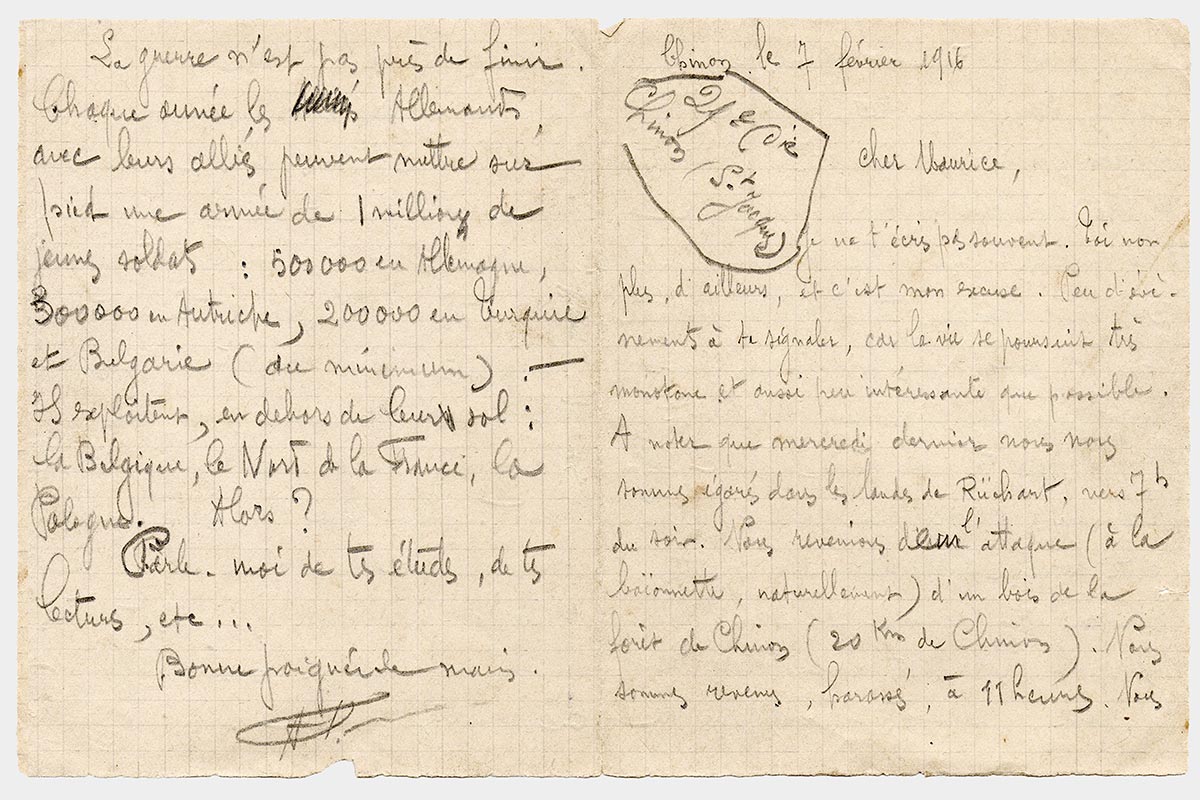 Chinon, le 7 février 1916
29e Cie
(St Jacques)
Chinon
Cher Maurice,
Je ne t'écris pas souvent. Toi non
plus, d'ailleurs, et c'est mon excuse. Peu d'évè-
nements à te signaler, car la vie se poursuit très
monotone et aussi peu intéressante que possible.
A noter que mercredi dernier nous nous
sommes égarés dans les landes de Rüchart, vers 7h
du soir. Nous revenions de l'attaque (à la
baïonnette, naturellement) d'un bois de la
forêt de Chinon (20 Km de Chinon). Nous
sommes revenus, harassé, à 11 heures. Nous
La guerre n'est pas près de finir.
Chaque année les Allemands,
avec leurs alliés peuvent mettre sur
pied une armée de 1 million de
jeunes soldats : 500000 en Allemagne,
300000 en Autriche, 200000 en Turquie
et Bulgarie (au minimum). —
Ils exploitent, en dehors de leur sol :
la Belgique, le Nord de la France, la
Pologne. Alors ?
Parle-moi de tes études, de tes
lectures, etc...
Bonne poignée de main.